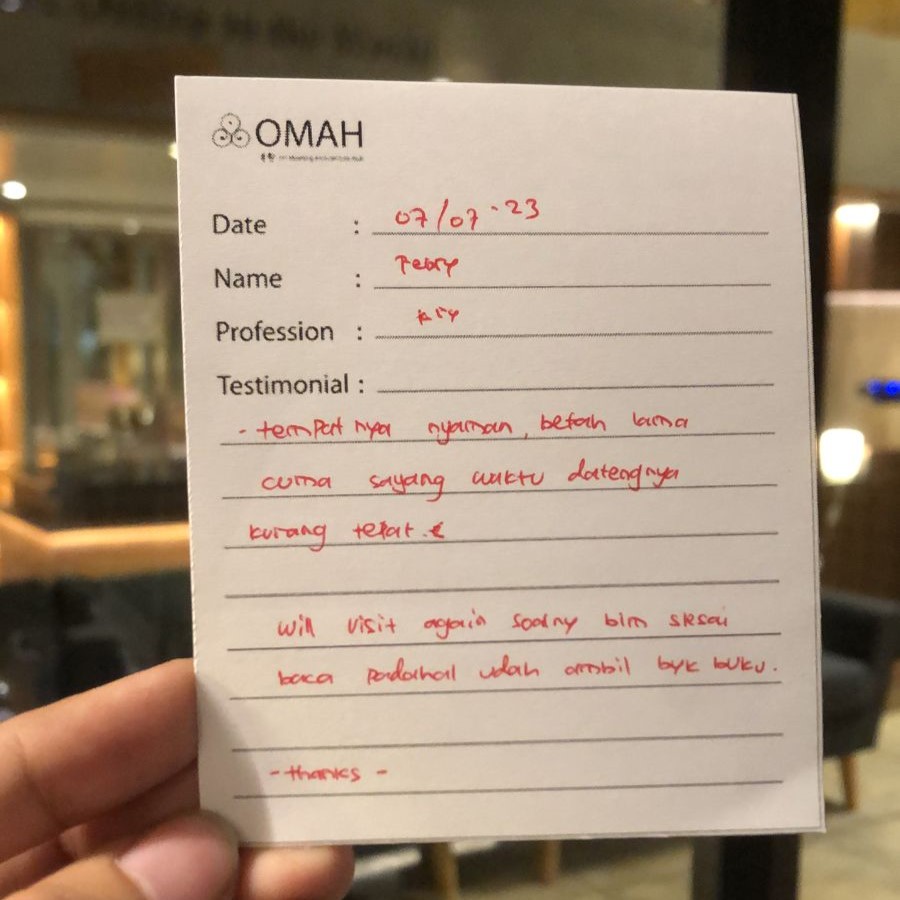 OMAH
Date : 07/07-23
Name : Febry
Profession :
Testimonial :
- tempat nya nyaman, betah lama
cuma sayang waktu datengnya
kurang tepat.
will visit again soalny blm slesai
baca padahal udah ambil byk buku.
- thanks -